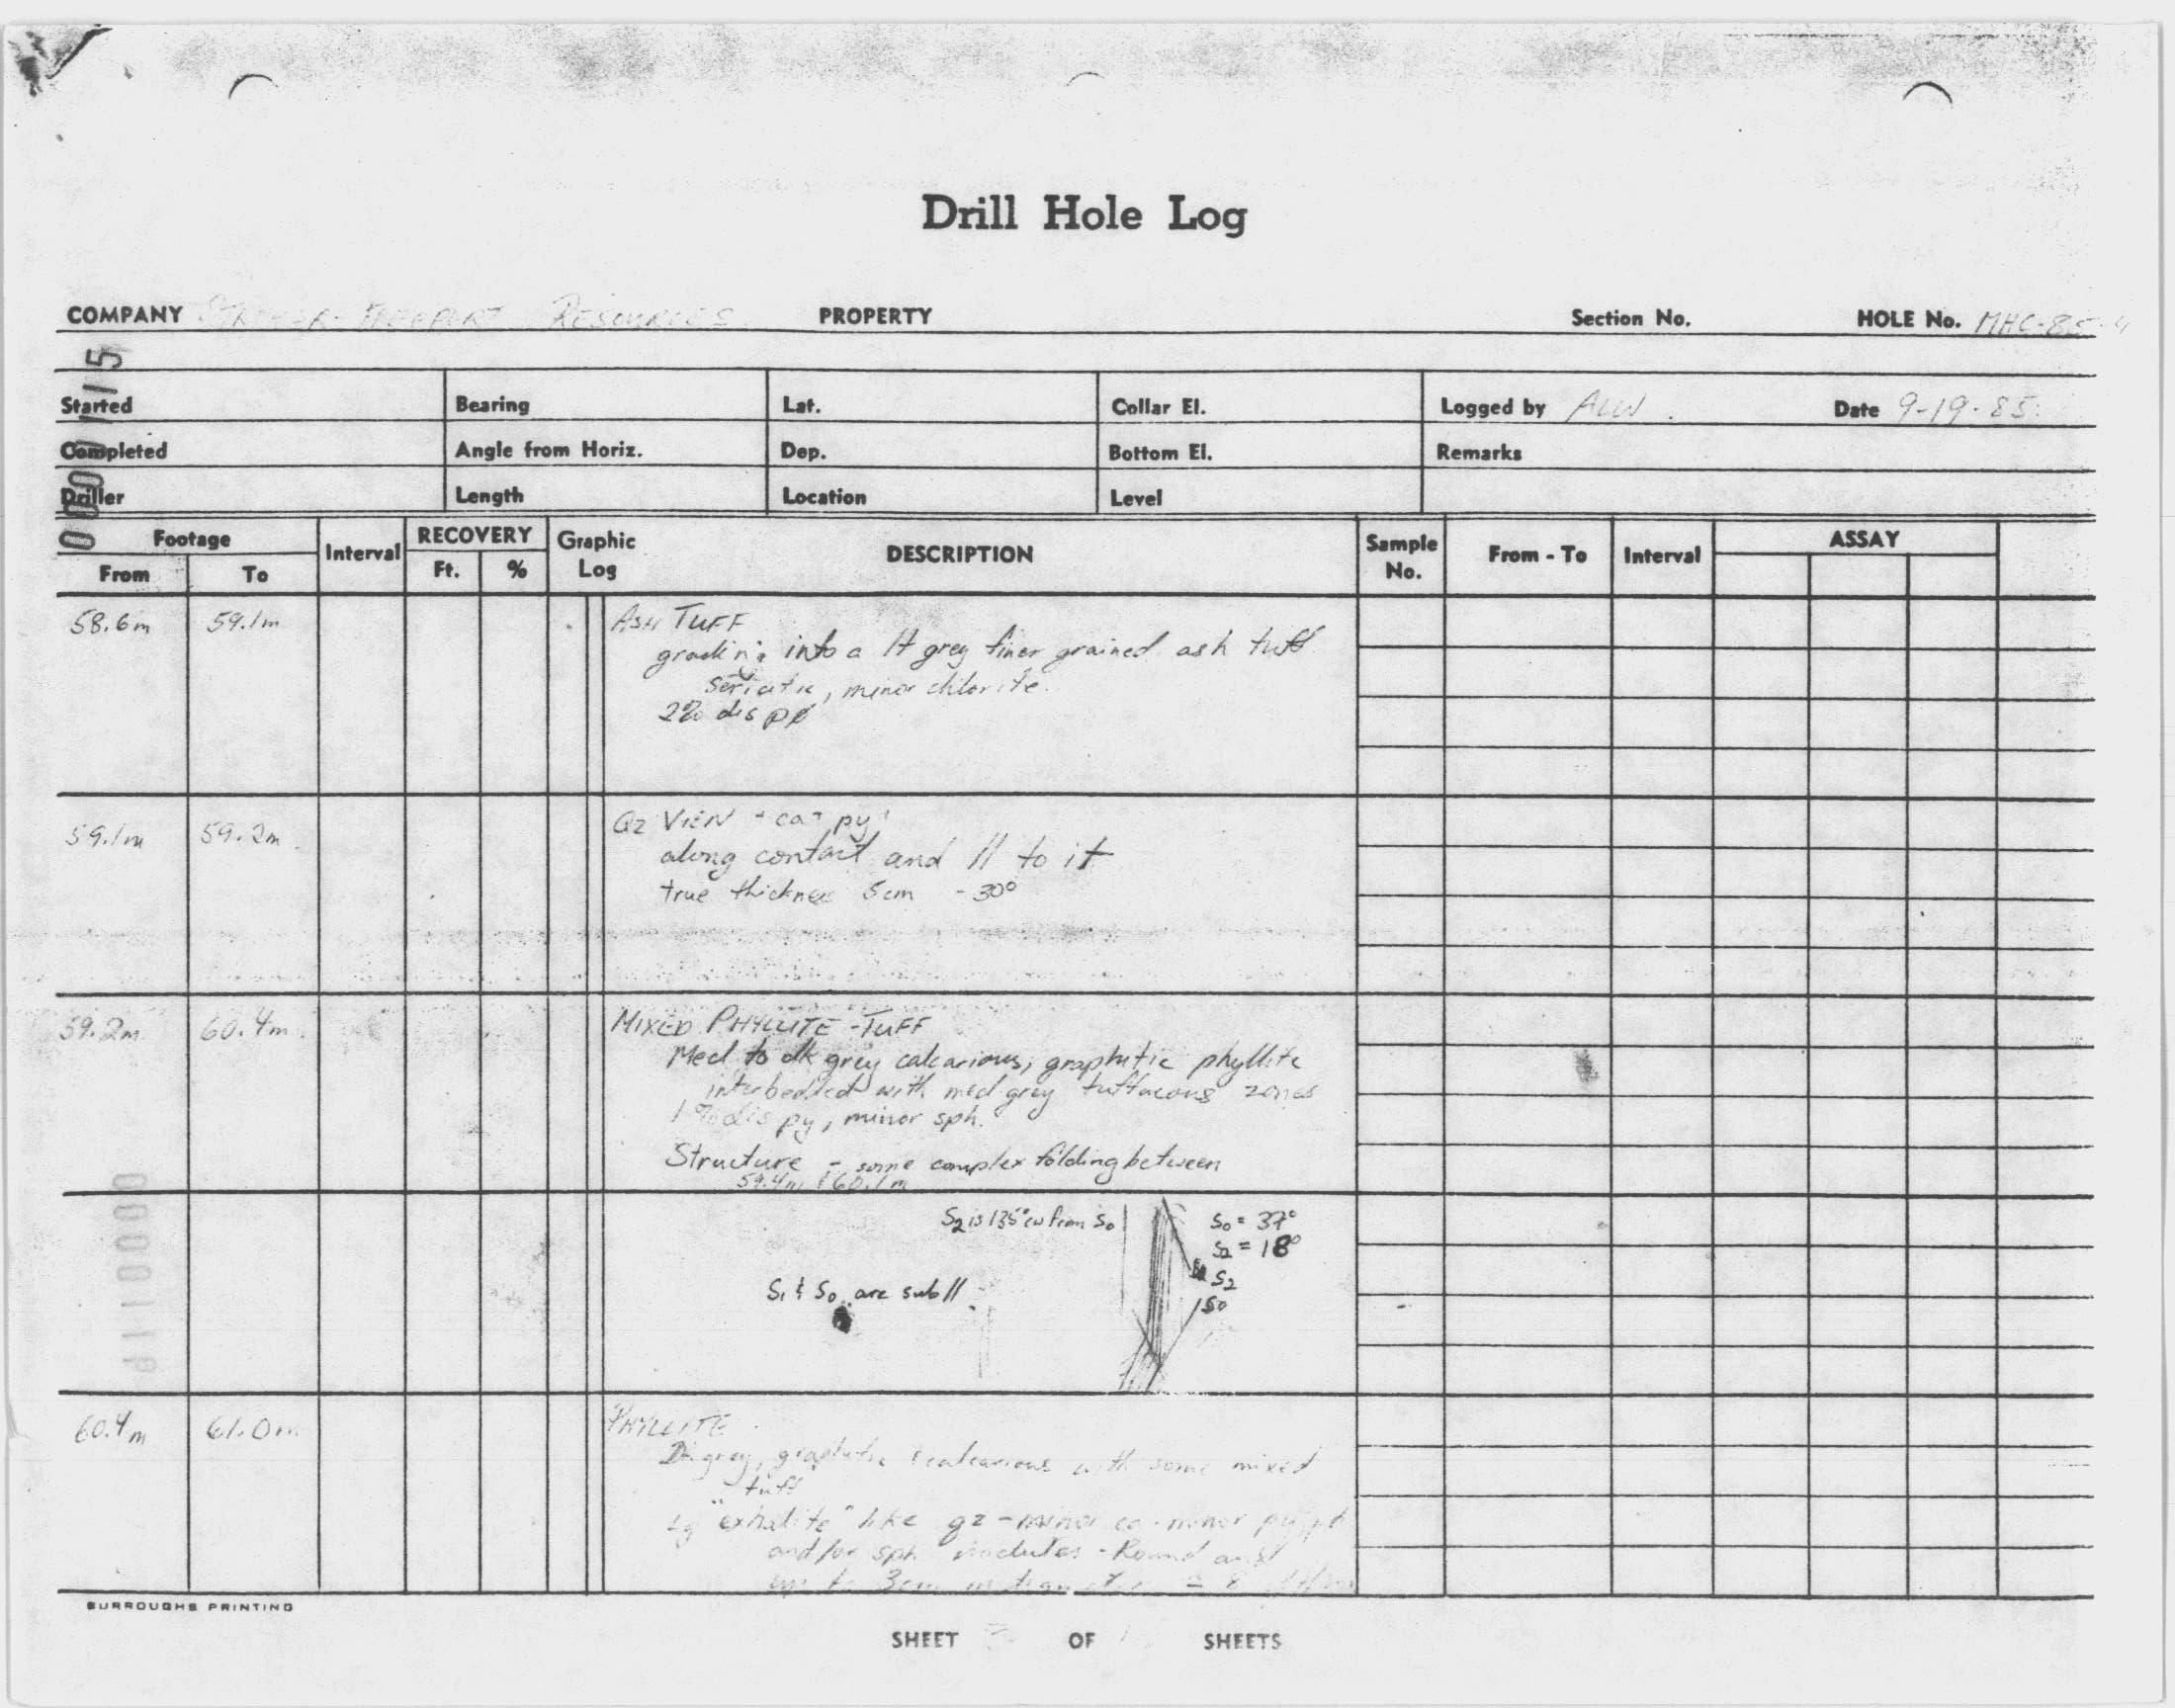 Drill Hole Log
COMPANY RESOURCES PROPERTY Section No. HOLE No. MHC-85-4
Started Bearing Lat. Collar El. Logged by ALW Date 9-19-85
Completed Angle from Horiz. Dep. Bottom El. Remarks
Driller Length Location Level
Footage Interval RECOVERY Graphic Log DESCRIPTION Sample No. From - To Interval ASSAY
From To Ft. %
58.6m 59.1m ASH TUFF
grading into a lt grey finer grained ash tuff
minor chlorite.
2% dis
59.1m 59.2m QZ VIEN - ca - py
along contact and // to it
true thickness 5cm - 30°
59.2m 60.4m MIXED PHYLLITE - TUFF
Med to dk grey calcarious, graphitic phyllite
interbedded with med grey tuffacous zones
1% dis py, minor sph.
Structure - some complex folding between
59.4m & 60.1m
S2 is 135° cw from So So = 37°
S2 = 18°
S2
S1 & So are sub //
So
60.4m 61.0m PHYLLITE
Dk grey, graphitic & calcarious with some mixed
tuff
Lg "exhalite" like qz - minor cc - minor
and/or sph - Round
up to 3cm
BURROUGHS PRINTING
SHEET OF SHEETS